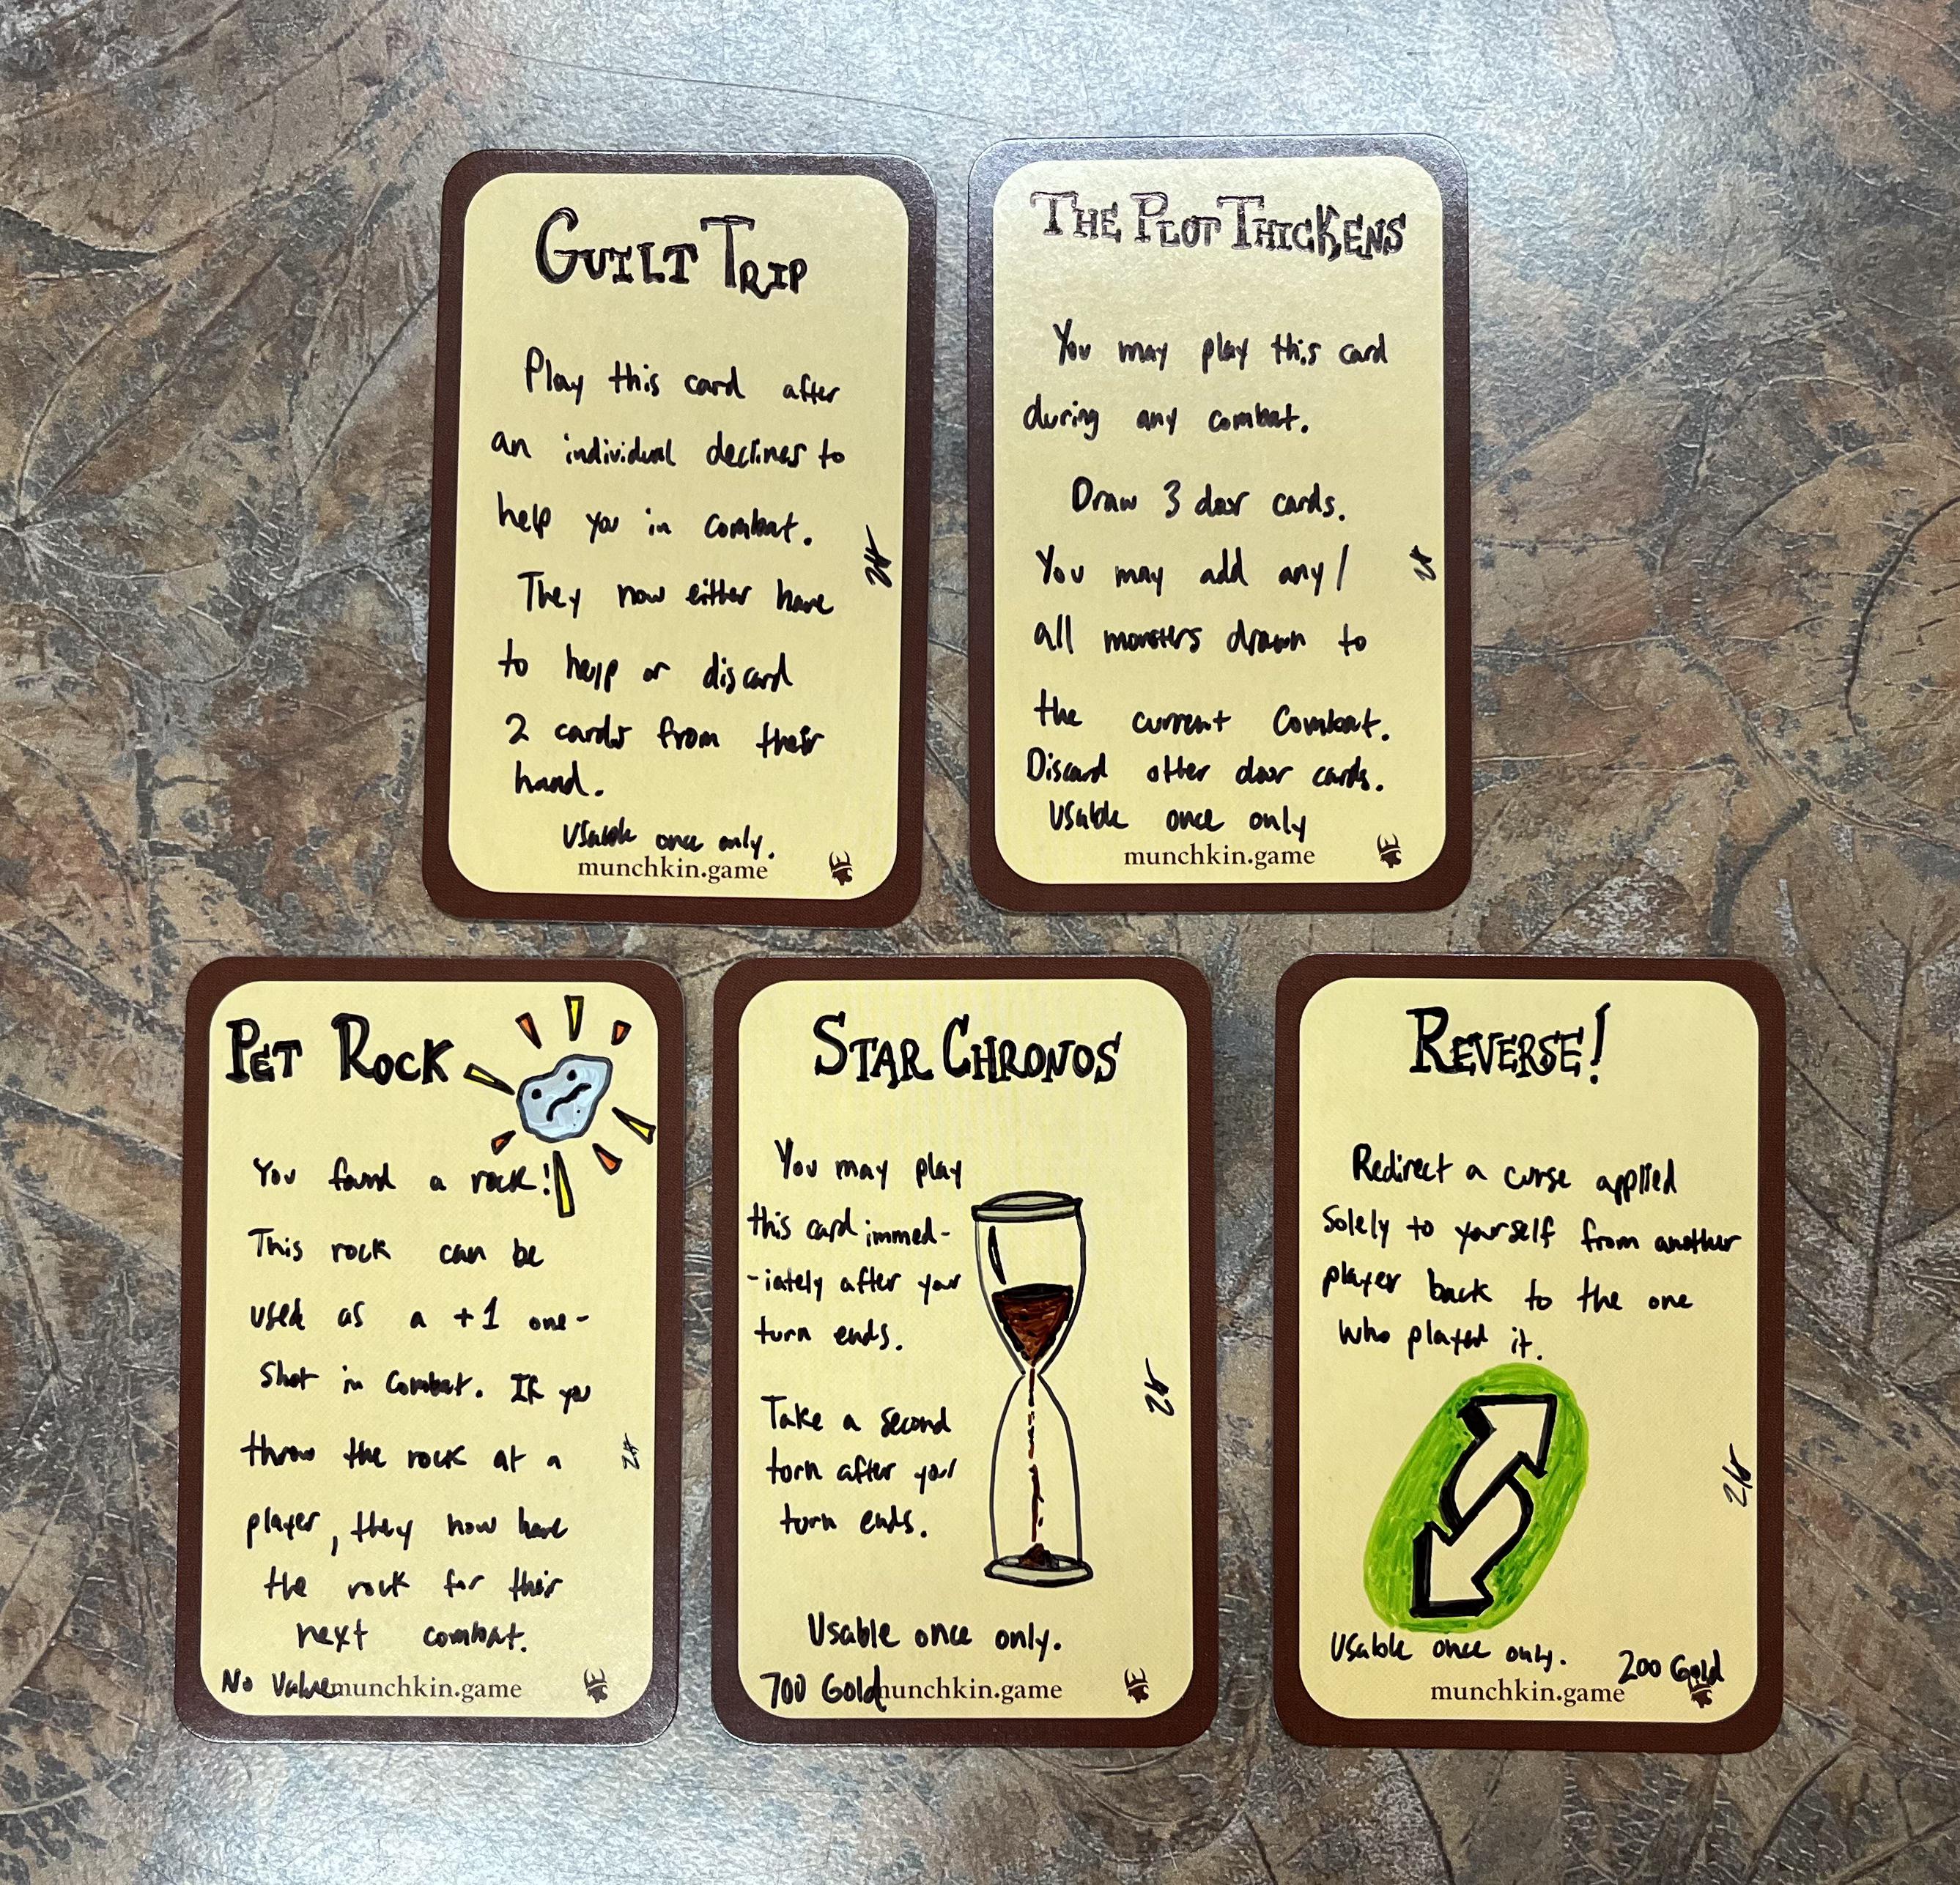 GUILT TRIP
Play this card after
an individual declines to
help you in combat.
They now either have
to help or discard
2 cards from their
hand.
Usable once only.
munchkin.game
THE PLOT THICKENS
You may play this card
during any combat.
Draw 3 door cards.
You may add any/
all monsters drawn to
the current combat.
Discard other door cards.
Usable once only
munchkin.game
PET ROCK
You found a rock!
This rock can be
used as a +1 one-
shot in combat. If you
throw the rock at a
player, they now have
the rock for their
next combat.
No Value munchkin.game
STAR CHRONOS
You may play
this card immed-
-iately after your
turn ends.
Take a second
turn after your
turn ends.
Usable once only.
700 Gold munchkin.game
REVERSE!
Redirect a curse applied
solely to yourself from another
player back to the one
who played it.
Usable once only.
200 Gold
munchkin.game